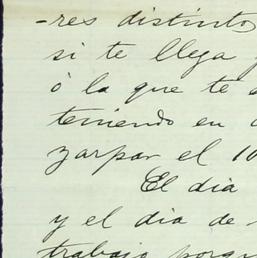 -res distinto
si te llega
ó la que te
teniendo en
zarpar el 10
El dia
y el dia de
trabajo porqu